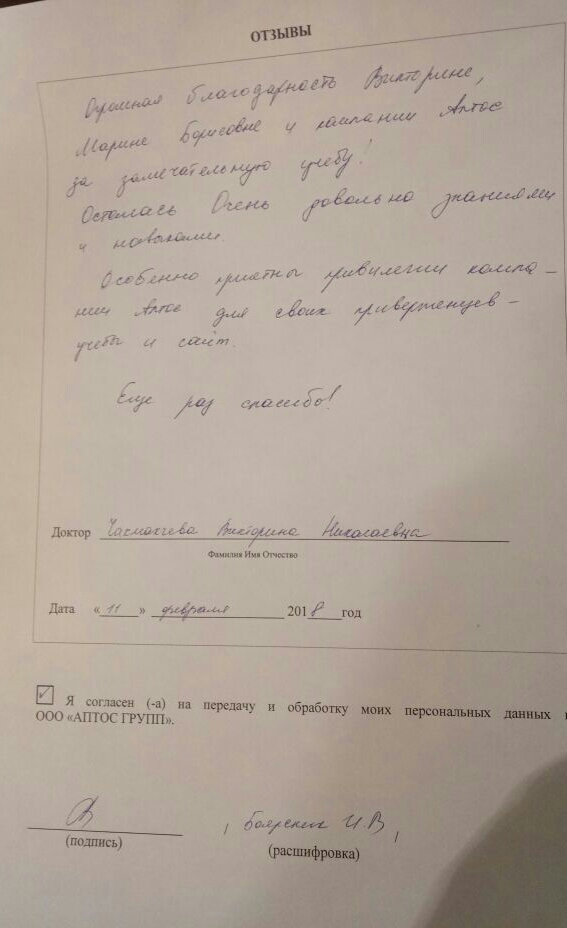 ОТЗЫВЫ
Огромная благодарность Викторине,
Марине Борисовне и кампании Аптос
за замечательную учебу!
Осталась Очень довольна знаниями
и навыками.
Особенно приятны привилегии компа-
нии Аптос для своих приверженцев-
учебы и сайт.
Еще раз спасибо!
Доктор Викторина Николаевна
Фамилия Имя Отчество
Дата «11» февраля 2018 год
✓ Я согласен (-а) на передачу и обработку моих персональных данных
ООО «АПТОС ГРУПП».
И В
(подпись)
(расшифровка)